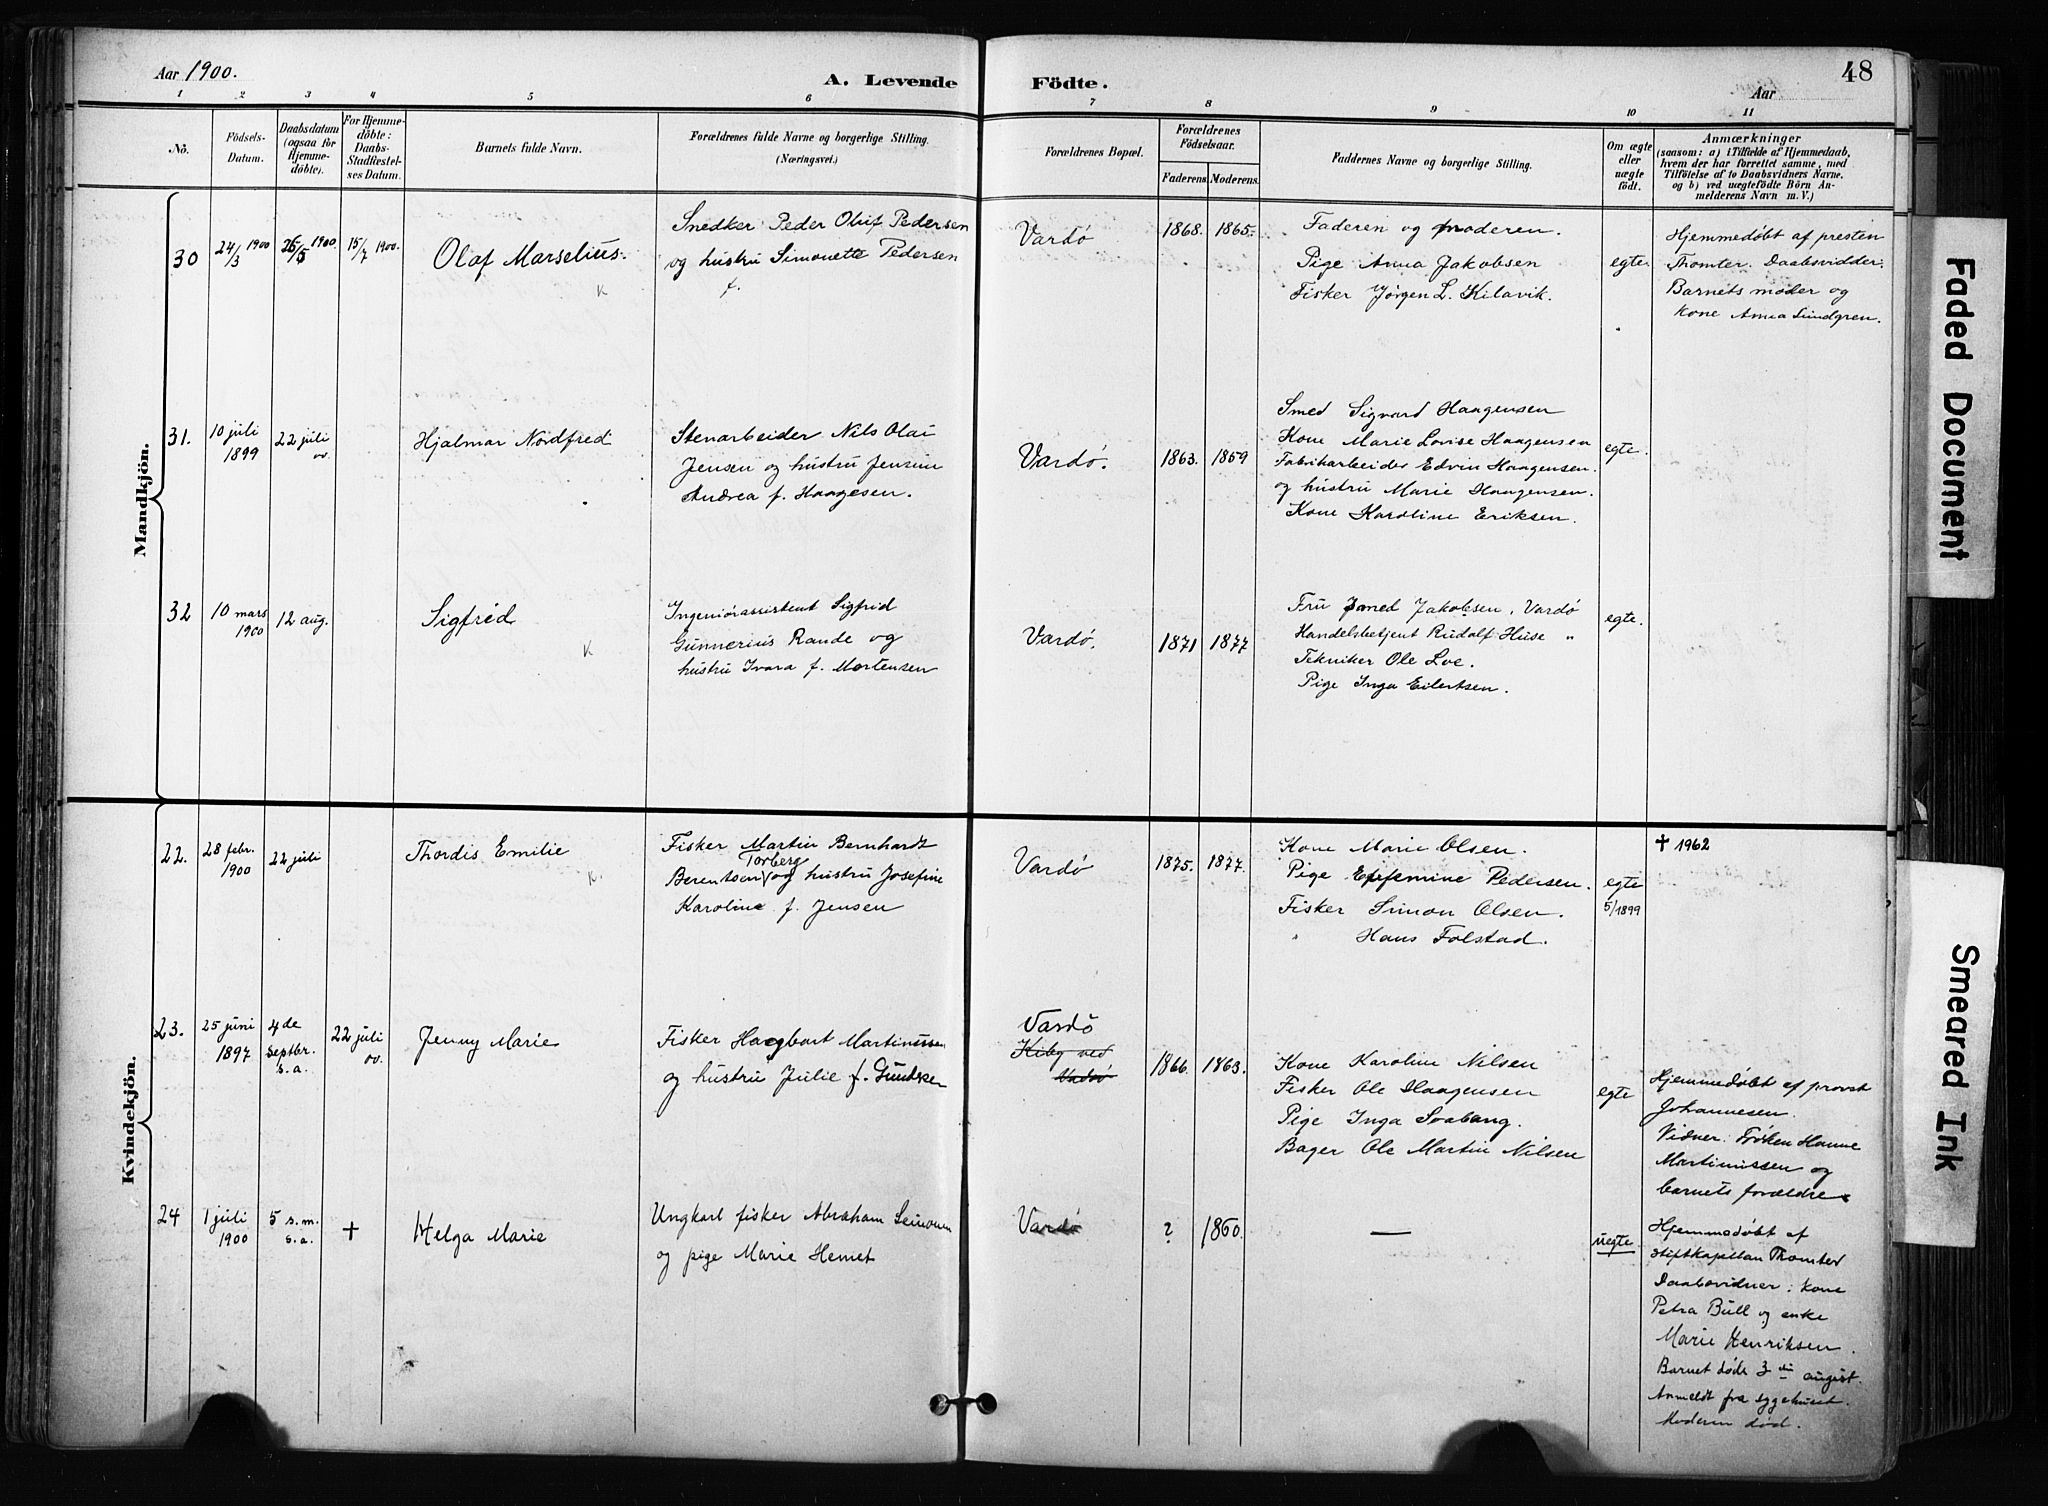 Aar 1900.
A. Levende Födte.
Aar
48
1 2 3 4 5 6 7 8 9 10 11
No.
Födsels-
Datum.
Daabsdatum
(ogsaa for
Hjemme-
döbte).
For Hjemme-
döbte:
Daabs-
Stadfæstel-
ses Datum.
Barnets fulde Navn.
Forældrenes fulde Navne og borgerlige Stilling.
(Næringsvei.)
Forældrenes Bopæl.
Forældrenes
Födselsaar.
Faderens. Moderens.
Faddernes Navne og borgerlige Stilling.
Om ægte
eller
uægte
födt.
Anmærkninger
(saasom: a) i Tilfælde af Hjemmedaab,
hvem der har forrettet samme, med
Tilföielse af to Daabsvidners Navne,
og b) ved uægtefödte Börn An-
melderens Navn m. V.)
Mandkjön.
30
24/3 1900
26/5 1900
15/7 1900.
Olaf Marselius.
K
Snedker Peder Oluf Pedersen
og hustru Simonette Pedersen
f.
Vardö
1868. 1865.
Faderen og moderen.
Pige Anna Jakobsen
Fisker Jørgen L. Kilavik.
egte
Hjemmedøbt af presten
Thomter. Daabsvidder.
Barnets moder og
kone Anna Lundgren.
31.
10 juli
1899
22 juli
ov.
Hjalmar Nordfred
Stenarbeider Nils Olai
Jensen og hustru Jensine
Andrea f. Haagesen.
Vardö.
1863. 1859
Smed Sigvard Haagensen
Kone Marie Lovise Haagensen
Fabrikarbeider Edvin Haagensen.
og hustru Marie Haagensen.
Kone Karoline Eriksen.
egte.
32
10 mars
1900
12 aug.
Sigfred
K
Ingeniørassistent Sigfrid
Gunnerius Rande og
hustru Ivara f. Mortensen
Vardö.
1871 1877
Fru Jakobsen, Vardö
Handelsbetjent Rudolf Huse "
Tekniker Ole Loe.
Pige Inga Eilertsen.
egte.
Kvindekjön.
22.
28 febr.
1900
22 juli
Thordis Emilie
K.
Fisker Martin Bernhardt
Torberg
Berentsen og hustru Josefine
Karoline f. Jensen
Vardö
1875. 1877.
Kone Marie Olsen.
Pige Effemine Pedersen.
Fisker Simon Olsen.
" Hans Folstad.
egte
5/1899
✝ 1962
23.
25 juni
1897
4de
septbr.
s.a.
22 juli
ov.
Jenny Marie
Fisker Hagbart Martinussen
og hustru Julie f.
Vardö
Kibg ved
Vadsø
1866. 1863.
Kone Karoline Nilsen
Fisker Ole Haagensen
Pige Inga
Bager Ole Martin Nilsen
egte
Hjemmedøbt af provst
Johannesen.
Vidner: Frøken Hanne
Martinussen og
barnets forældre
24
1 juli
1900
5 s.m.
s.a.
+
Helga Marie
Ungkarl fisker Abraham
og pige Marie Hemet
Vardö
? 1860.
—
uegte
Hjemmedøbt af
stiftkapellan Thomter
Daabsvidner: kone
Petra Bull og enke
Marie Henriksen.
Barnet døde 3die august.
Anmeldt fra sygehuset.
Moderen død.
Faded Document
Smeared Ink